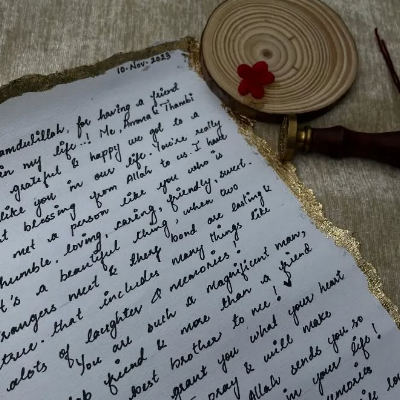 10-Nov-2023
amdulillah, for having a friend
in my life..! Me, Amma & Thambi
grateful & happy we got to a
like you in our life. You're really
t blessing from Allah to us. I have
met a person like you who is
humble, loving, caring, friendly, sweet.
t's a beautiful thing, when two
rangers meet & they bond are eating &
true. that includes many things like
alots of laughter & memories!
You are such a magnificient man,
friend & more than a friend
best brother to me!
grant you what your heart
pray & will make
Allah sends you so
in your life!
memories